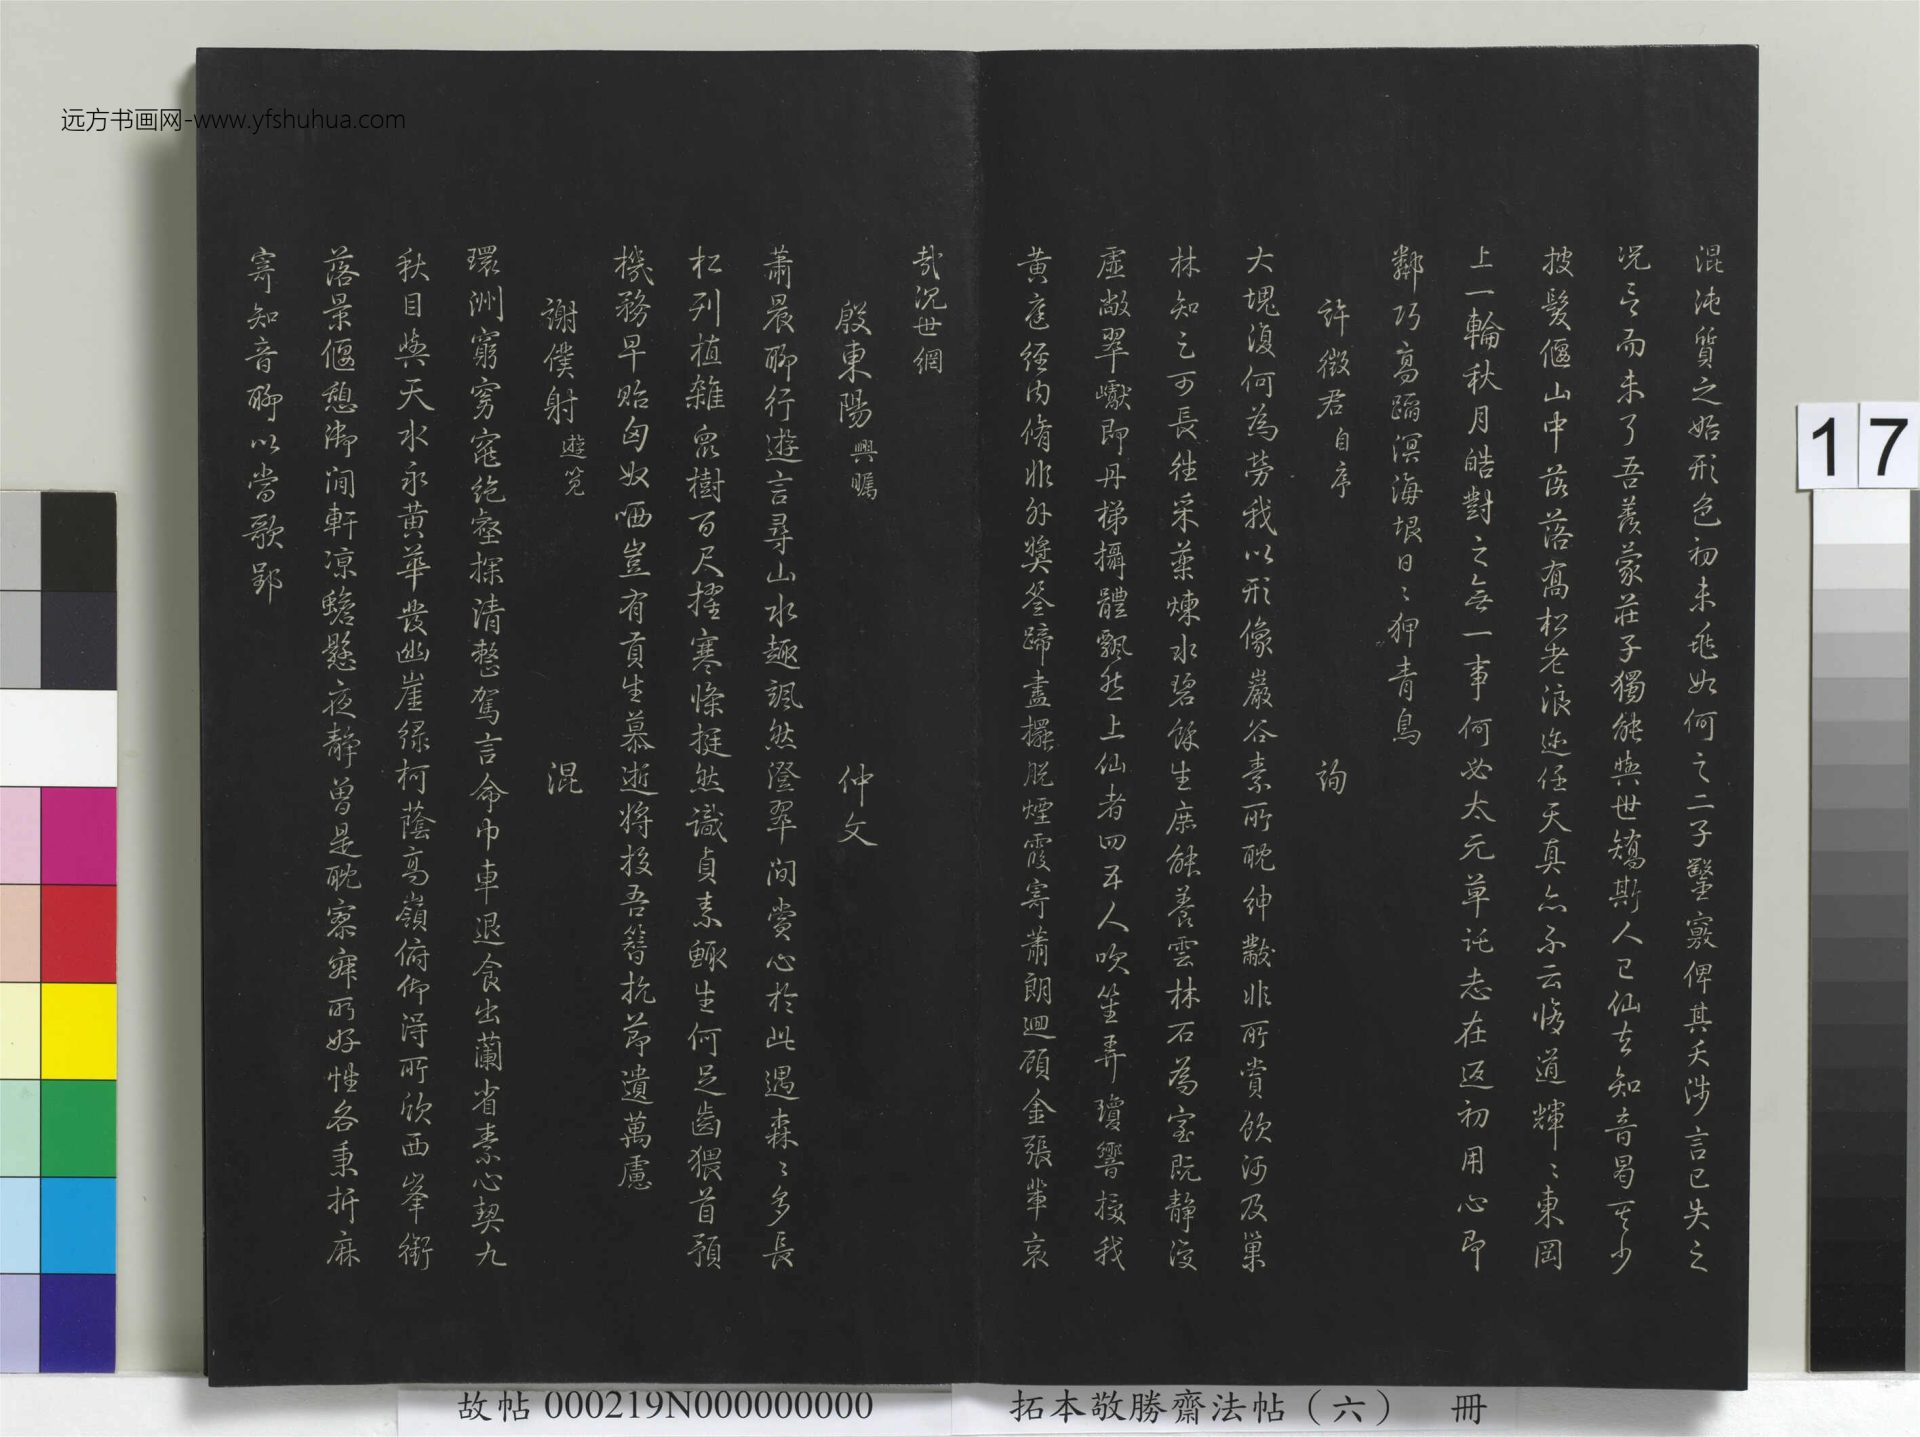 混沌質之始形色初未兆如何之二子鑿竅俾其夭涉言已失之
况言而未了吾羨蒙莊子獨能與世矯斯人已仙去知音曷其少
披髮偃山中落落喬松老浪迹任天真亦不云脩道輝〻東岡
上一輪秋月皓對之無一事何必太元草託志在返初用心即
鄰巧高蹈溟海垠日〻狎青鳥
許徵君自序 詢
大塊復何為勞我以形像巖谷素所耽紳黻非所賞飲河及巢
林知之可長往采藥煉水碧餘生庶能養雲林石為室既静复
虛敞翠巘即丹梯攝體飄然上仙者四五人吹笙弄瓊響授我
黄庭經内脩非外獎筌蹄盡擺脱煙霞寄蕭朗迴顧金張輩哀
哉況世網
殷東陽興矚 仲文
蕭晨聊行遊言尋山水趣颯然澄翠間賞心於此遇森〻多長
松列植雜衆樹百尺擢寒條挺然識貞素鯫生何足齒猥首預
機務早貽匈奴哂豈有貢生慕逝將投吾簪抗節遺萬慮
謝僕射遊覽 混
環洲窮窈窕絶壑探清整駕言命巾車退食出蘭省素心契九
秋目與天水永黄華發幽崖緑柯蔭高嶺俯仰得所欣西峯銜
落景偃憩御澗軒凉蟾懸夜静曾是耽寮寀所好性各秉折麻
寄知音聊以當歌郢
远方书画网-www.yfshuhua.com
17
故帖000219N000000000 拓本敬勝齋法帖（六） 冊